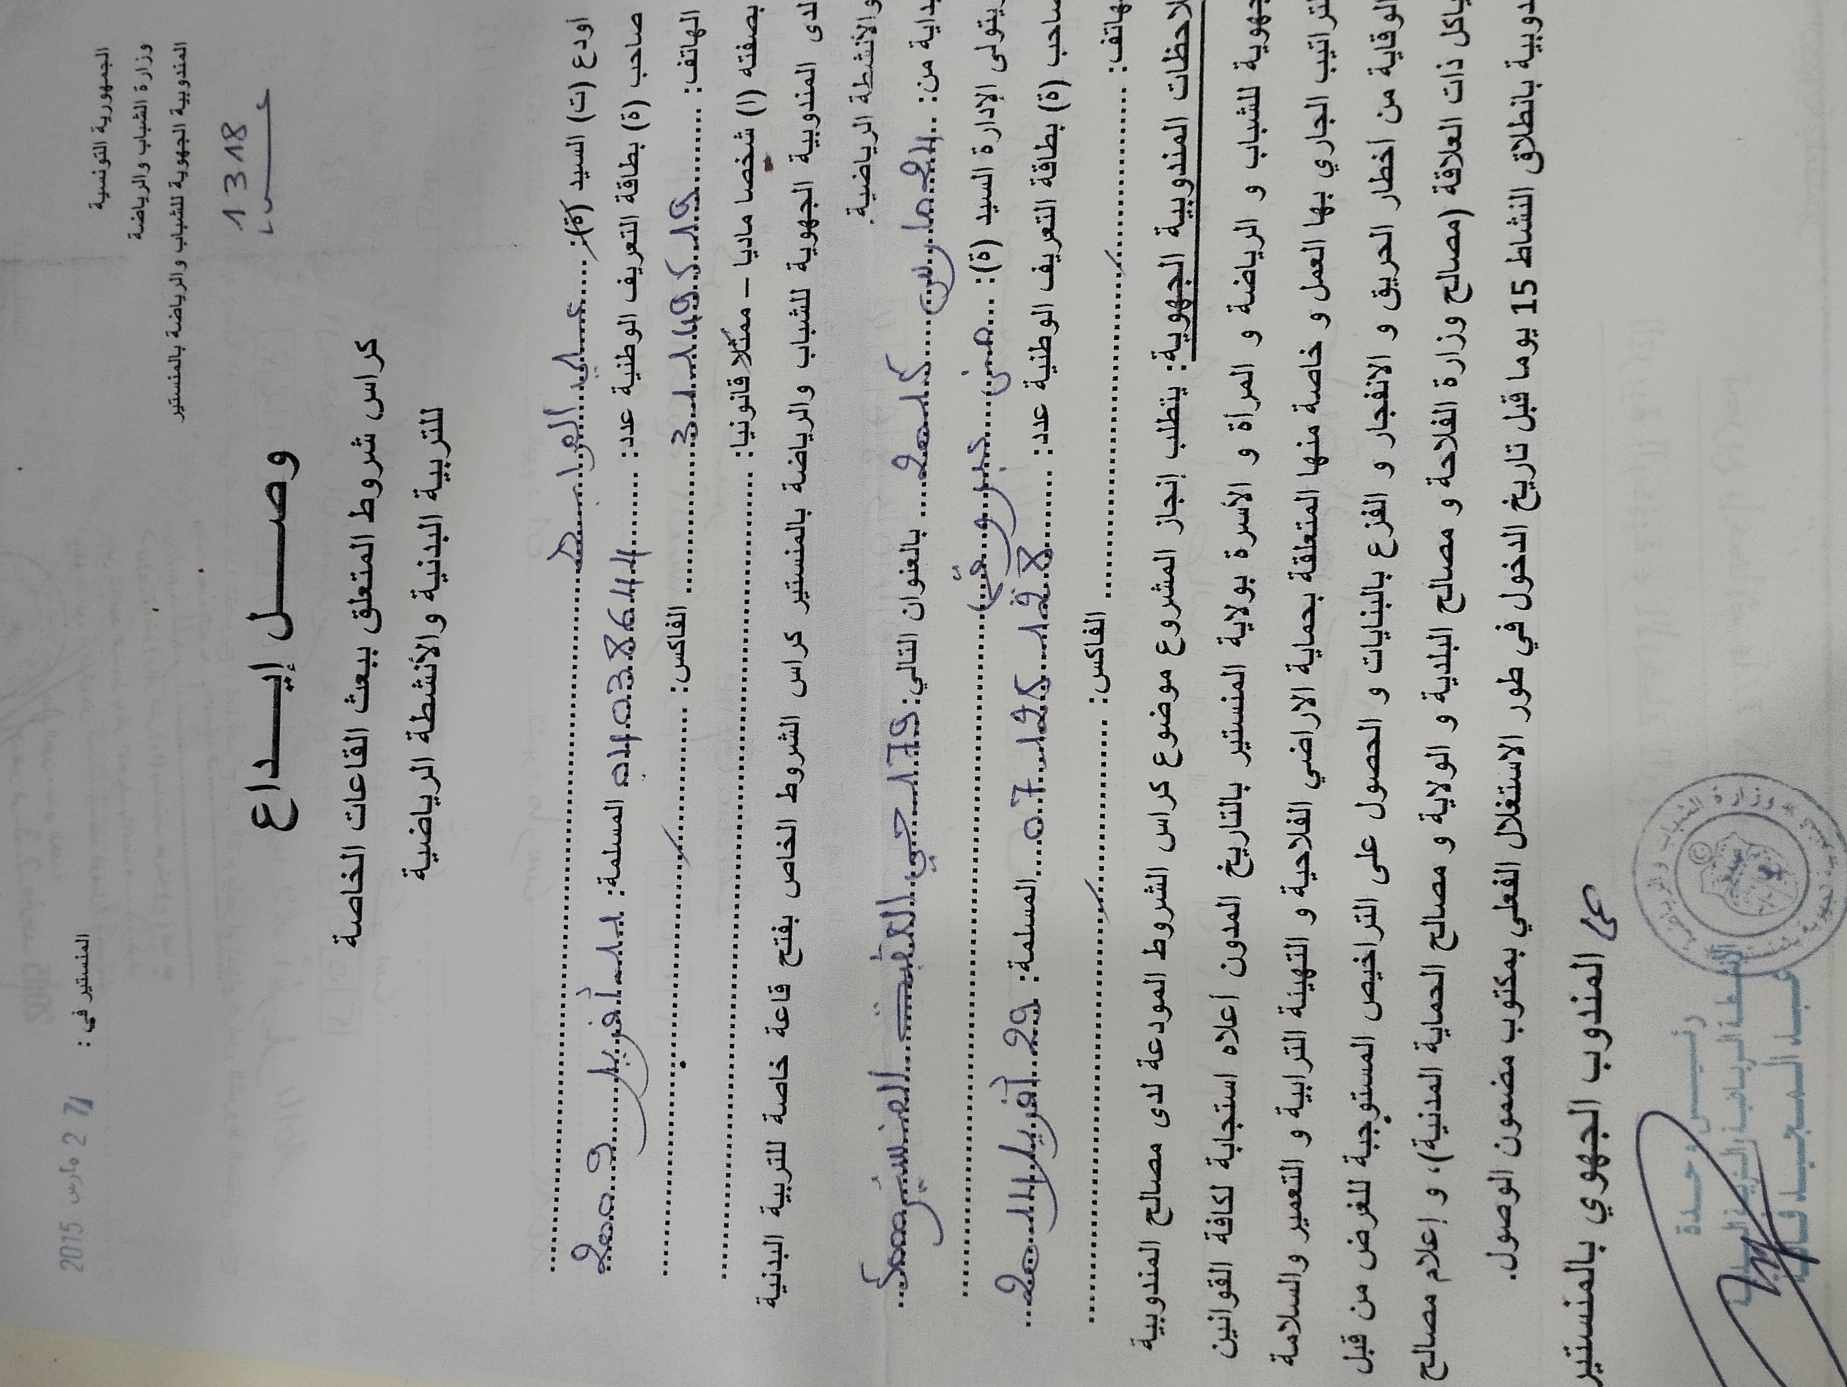 الجمهورية التونسية
وزارة الشباب والرياضة
المندوبية الجهوية للشباب والرياضة بالمنستير
المنستير في :
27 مارس 2015
1318
وصـــــل إيـــــداع
كراس شروط المتعلق ببعث القاعات الخاصة
للتربية البدنية والأنشطة الرياضية
أودع (ت) السيد (ة):
صاحب (ة) بطاقة التعريف الوطنية عدد: 04038644 المسلمة: 11 أفريل 2009
الهاتف: 31149519 الفاكس:
بصفته (ا) شخصا ماديا – ممثلا قانونيا:
لدى المندوبية الجهوية للشباب والرياضة بالمنستير كراس الشروط الخاص بفتح قاعة خاصة للتربية البدنية
والأنشطة الرياضية.
بداية من: 24 مارس 2015 بالعنوان التالي: 179 حي المنستير 5000
يتولى الإدارة السيد (ة):
صاحب (ة) بطاقة التعريف الوطنية عدد: 07125128 المسلمة: 29 أفريل 2011
الهاتف: الفاكس:
ملاحظات المندوبية الجهوية: يتطلب إنجاز المشروع موضوع كراس الشروط المودعة لدى مصالح المندوبية
الجهوية للشباب و الرياضة و المرأة و الأسرة بولاية المنستير بالتاريخ المدون أعلاه استجابة لكافة القوانين
التراتيب الجاري بها العمل و خاصة منها المتعلقة بحماية الاراضي الفلاحية و التهيئة الترابية و التعمير والسلامة
الوقاية من أخطار الحريق و الانفجار و الفزع بالبنايات و الحصول على التراخيص المستوجبة للغرض من قبل
هياكل ذات العلاقة (مصالح وزارة الفلاحة و مصالح البلدية و الولاية و مصالح الحماية المدنية)، و إعلام مصالح
المندوبية بانطلاق النشاط 15 يوما قبل تاريخ الدخول في طور الاستغلال الفعلي بمكتوب مضمون الوصول.
المندوب الجهوي بالمنستير
رئيس وحدة